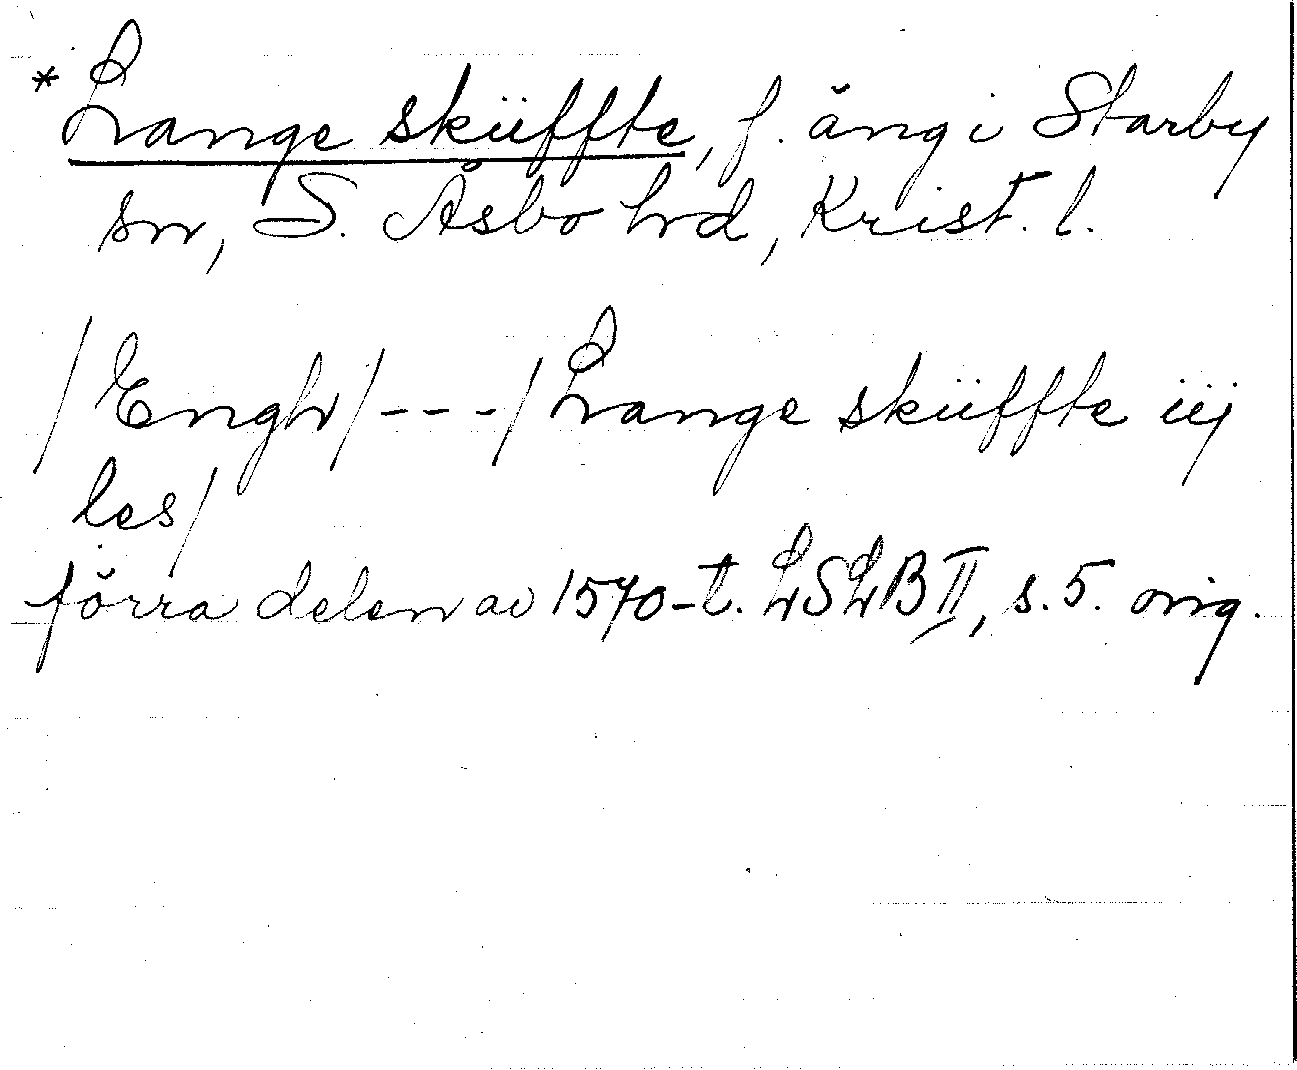 *Lange skiiffte, f. äng i Starby
sn, S. Åsbo hd, Krist. l.
/Engh/---/Lange skiiffte iij
les/
förra delen av 1570-t. LSLB II, s. 5. orig.